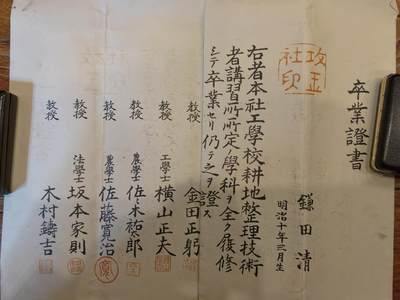 卒業證書
鎌田清
明治十年三月生
攻玉
社印
右者本社工學校耕地整理技術
者講習所所定ノ學科ヲ全ク履修
シテ卒業セリ仍テ之ヲ證ス
教授 金田正躬
教授 工學士 橫山正夫
教授 農學士 佐々木祐太郎
教授 農學士 佐藤寛治
教授 法學士 坂本家則
教授 木村鑄吉